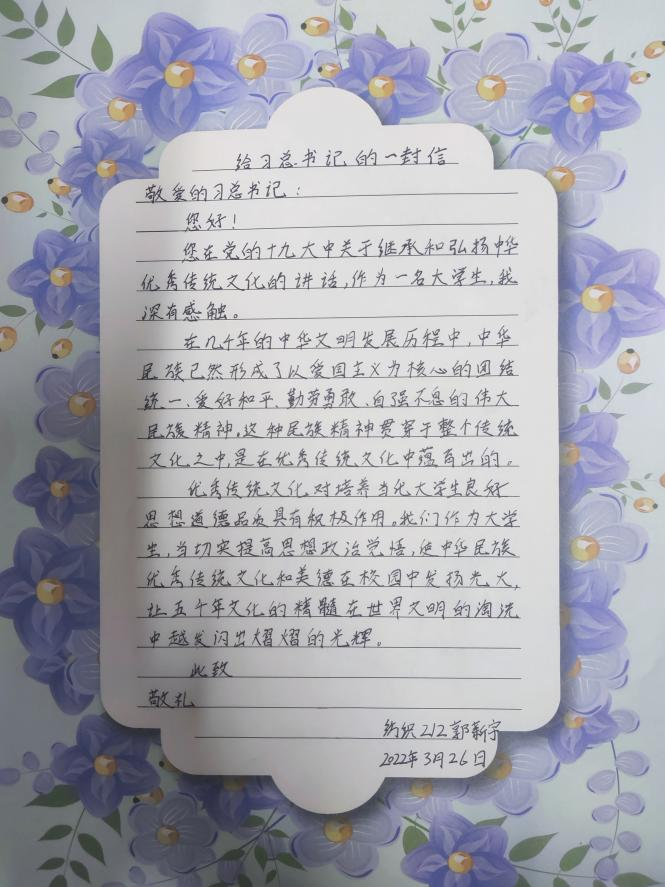 给习总书记的一封信
敬爱的习总书记：
您好！
您在党的十九大中关于继承和弘扬中华
优秀传统文化的讲话，作为一名大学生，我
深有感触。
在几千年的中华文明发展历程中，中华
民族已然形成了以爱国主义为核心的团结
统一、爱好和平、勤劳勇敢、自强不息的伟大
民族精神，这种民族精神贯穿于整个传统
文化之中，是在优秀传统文化中蕴育出的。
优秀传统文化对培养当代大学生良好
思想道德品质具有积极作用。我们作为大学
生，当切实提高思想政治觉悟，使中华民族
优秀传统文化和美德在校园中发扬光大，
让五千年文化的精髓在世界文明的淘洗
中越发闪出熠熠的光辉。
此致
敬礼
纺织212郭新宇
2022年3月26日